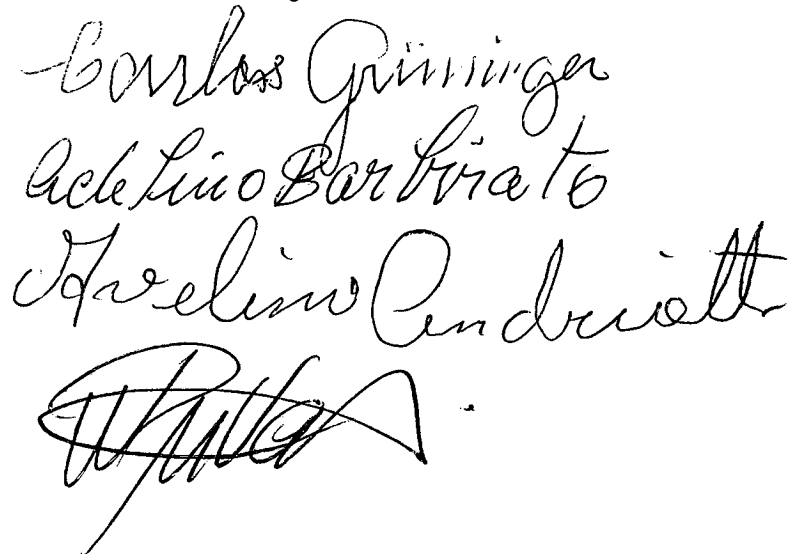 Carlos Grüninger
Adelino Barbirato
Avelino Andriatti